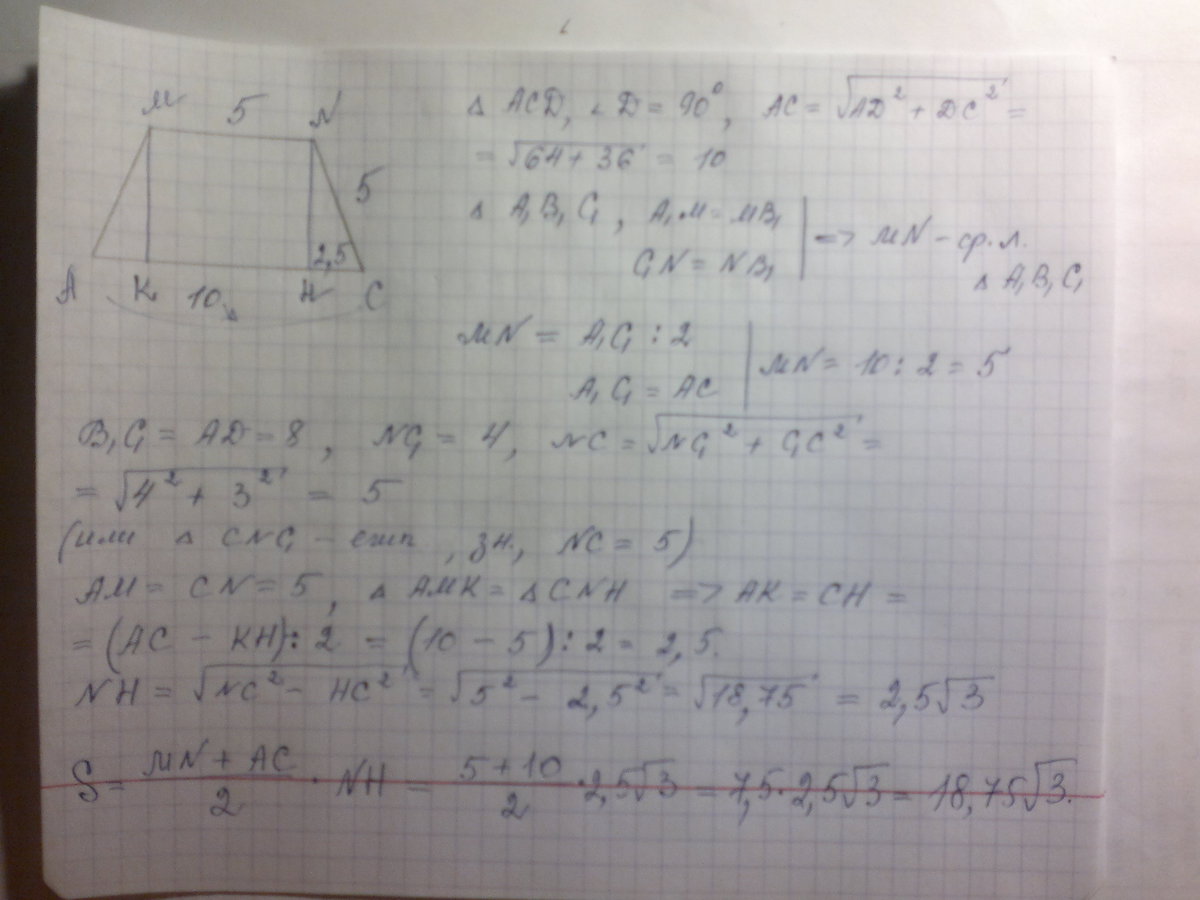 M 5 N
5
2,5
A K 10 H C
△ ACD, ∠D = 90°, AC = √AD² + DC² =
= √64 + 36 = 10
△ A₁B₁C₁, A₁M = MB₁
C₁N = NB₁ | => MN – ср. л. △ A₁B₁C₁
MN = A₁C₁ : 2
A₁C₁ = AC | MN = 10 : 2 = 5
B₁C₁ = AD = 8, NC₁ = 4, NC = √NC₁² + C₁C² =
= √4² + 3² = 5
(или △ CNC₁ – егип, зн., NC = 5)
AM = CN = 5, △ AMK = △ CNH => AK = CH =
= (AC – KH) : 2 = (10 – 5) : 2 = 2,5.
NH = √NC² – HC² = √5² – 2,5² = √18,75 = 2,5√3
S = (MN + AC)/2 · NH = (5 + 10)/2 · 2,5√3 = 7,5 · 2,5√3 = 18,75√3.